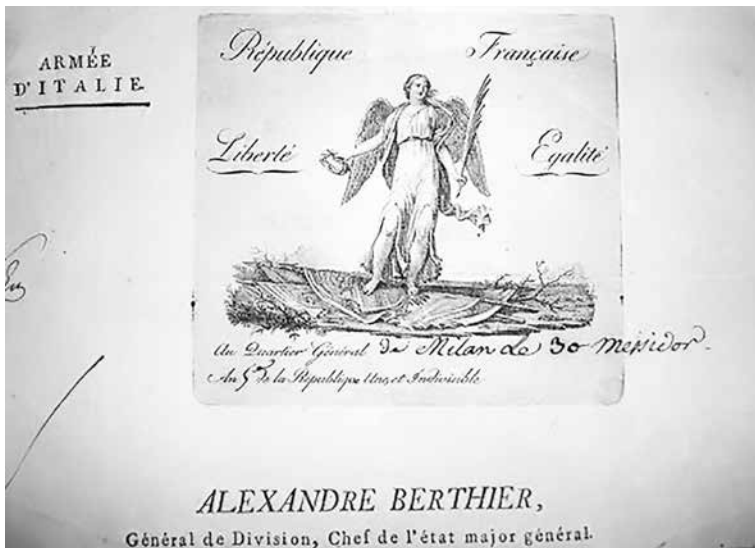 ARMÉE
D'ITALIE.
République Française
Liberté Egalité
Au Quartier Général de Milan le 30 Messidor.
An 5 de la République Une, et Indivisible
ALEXANDRE BERTHIER,
Général de Division, Chef de l'état major général.